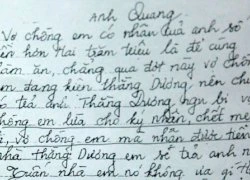 Anh Quang
Vợ chồng em có nhận của anh số
tiền hơn Hai trăm triệu là để cùng
làm ăn, chẳng qua đợt này vợ chồ
em đang kiện thằng Dương, nên ch
có trả anh. Thằng Dương ngu bị
chồng em lừa cho ký nhận, chết mẹ
, vợ chồng em mà nhận được tiền
nhà thằng Dương em sẽ trả anh n
Tuấn nhà em nó không ưa gì